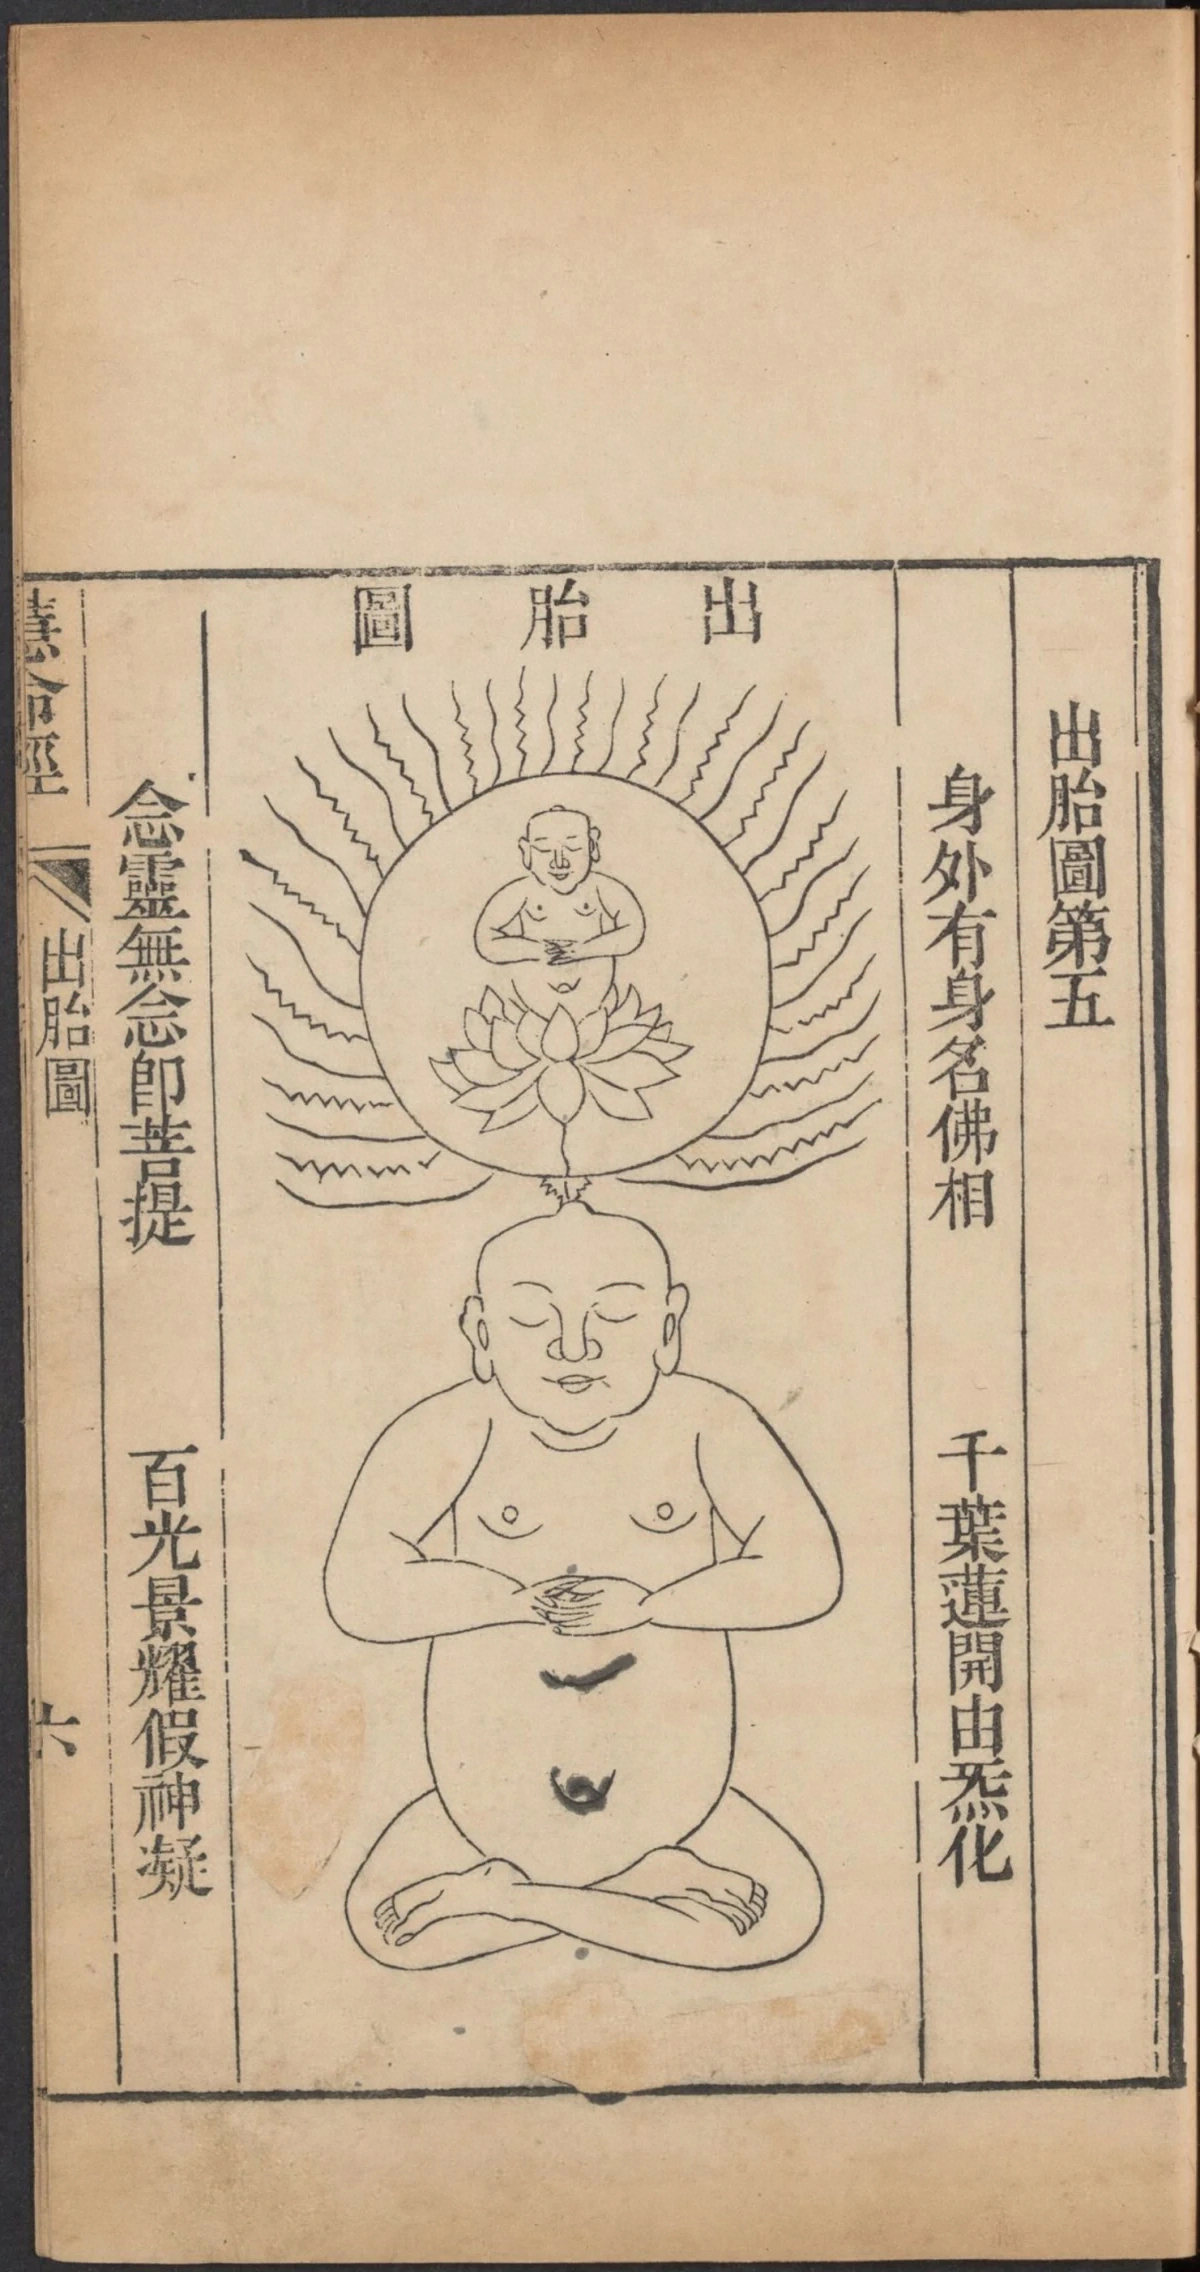 出胎圖第五
身外有身名佛相 千葉蓮開由炁化
出胎圖
念靈無念即菩提 百光景耀假神凝
慧命經 出胎圖 六